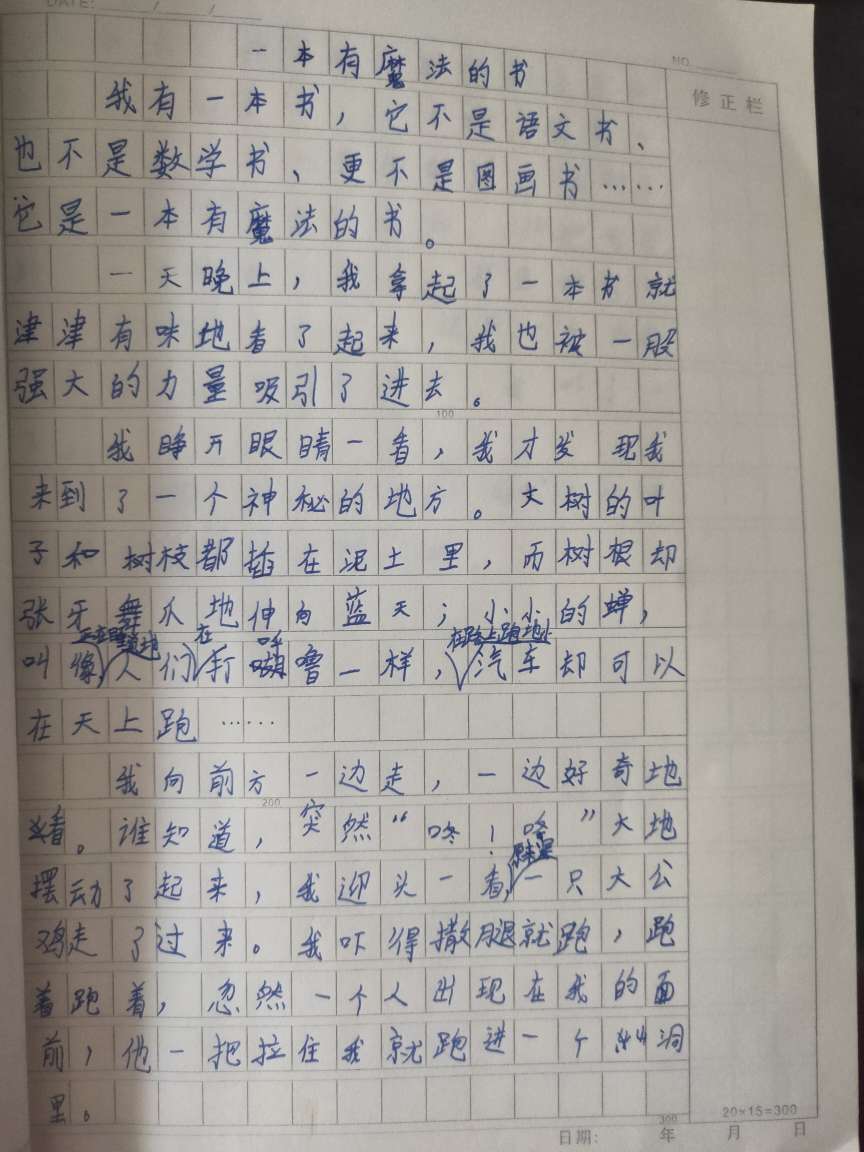 DATE: / /
NO
修正栏
一本有魔法的书
我有一本书，它不是语文书、
也不是数学书、更不是图画书……
它是一本有魔法的书。
一天晚上，我拿起了一本书就
津津有味地看了起来，我也被一股
强大的力量吸引了进去。
100
我睁开眼睛一看，我才发现我
来到了一个神秘的地方。大树的叶
子和树枝都插在泥土里，而树根却
张牙舞爪地伸向蓝天；小小的蝉，
在 呼 在路上跑地
叫像人们打噜一样，汽车却可以
在天上跑……
我向前方一边走，一边好奇地
200
看。谁知道，突然“咚！咚！”大地
原来是
摆动了起来，我迎头一看，一只大公
鸡走了过来。我吓得撒腿就跑，跑
着跑着，忽然一个人出现在我的面
前，他一把拉住我就跑进一个洞
里。
300
20×15=300
日期: 年 月 日